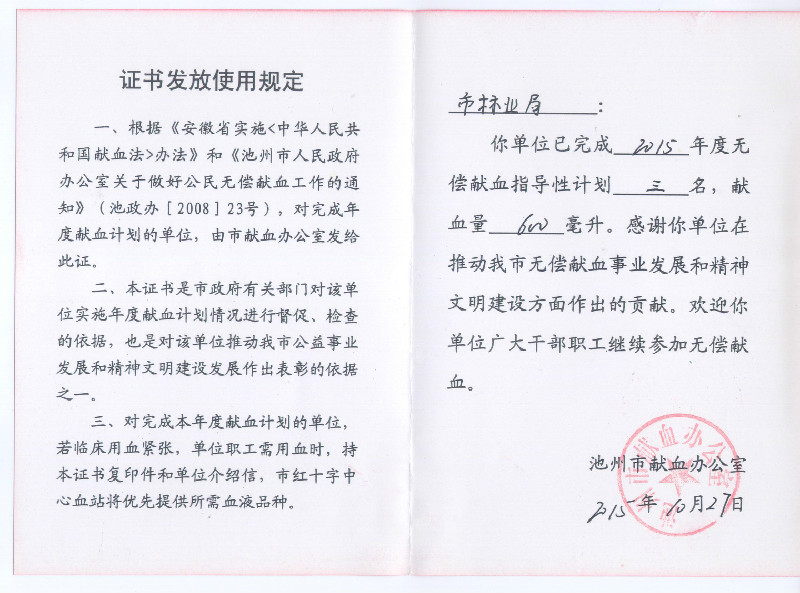 证书发放使用规定
一、根据《安徽省实施<中华人民共
和国献血法>办法》和《池州市人民政府
办公室关于做好公民无偿献血工作的通
知》（池政办［2008］23号），对完成年
度献血计划的单位，由市献血办公室发给
此证。
二、本证书是市政府有关部门对该单
位实施年度献血计划情况进行督促、检查
的依据，也是对该单位推动我市公益事业
发展和精神文明建设发展作出表彰的依据
之一。
三、对完成本年度献血计划的单位，
若临床用血紧张，单位职工需用血时，持
本证书复印件和单位介绍信，市红十字中
心血站将优先提供所需血液品种。
市林业局：
你单位已完成 2015 年度无
偿献血指导性计划 三 名，献
血量 600 毫升。感谢你单位在
推动我市无偿献血事业发展和精神
文明建设方面作出的贡献。欢迎你
单位广大干部职工继续参加无偿献
血。
池州市献血办公室
池州市献血办公室
2015年10月27日